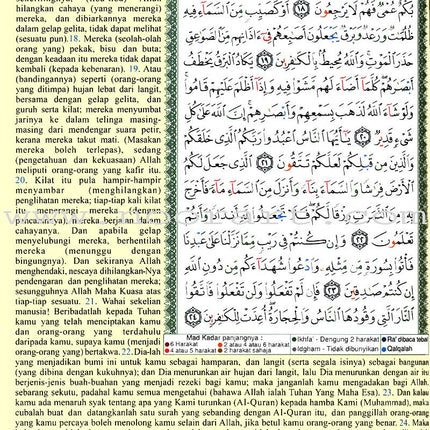 hilangkan cahaya (yang menerangi)
mereka, dan dibiarkannya mereka
dalam gelap gelita, tidak dapat melihat
(sesuatu pun).18. Mereka (seolah-olah
orang yang) pekak, bisu dan buta;
dengan keadaan itu mereka tidak dapat
kembali (kepada kebenaran). 19. Atau
(bandingannya) seperti (orang-orang
yang ditimpa) hujan lebat dari langit,
bersama dengan gelap gelita, dan
guruh serta kilat; mereka menyumbat
jarinya ke dalam telinga masing-
masing dari mendengar suara petir,
kerana mereka takut mati. (Masakan
mereka boleh terlepas), sedang
(pengetahuan dan kekuasaan) Allah
meliputi orang-orang yang kafir itu.
20. Kilat itu pula hampir-hampir
menyambar (menghilangkan)
penglihatan mereka; tiap-tiap kali kilat
itu menerangi mereka (dengan
pancarannya), mereka berjalan dalam
cahayanya. Dan apabila gelap
menyelubungi mereka, berhentilah
mereka (menunggu dengan
bingungnya). Dan sekiranya Allah
menghendaki, nescaya dihilangkan-Nya
pendengaran dan penglihatan mereka;
sesungguhnya Allah Maha Kuasa atas
tiap-tiap sesuatu. 21. Wahai sekelian
manusia! Beribadatlah kepada Tuhan
kamu yang telah menciptakan kamu
dan orang-orang yang terdahulu
daripada kamu, supaya kamu (menjadi
orang-orang yang) bertakwa. 22. Dia-lah
بُكْمٌ عُمْيٌ فَهُمْ لَا يَرْجِعُونَ ١٨ أَوْ كَصَيِّبٍ مِّنَ ٱلسَّمَآءِ فِيهِ
ظُلُمَٰتٌ وَرَعْدٌ وَبَرْقٌ يَجْعَلُونَ أَصَٰبِعَهُمْ فِىٓ ءَاذَانِهِم مِّنَ ٱلصَّوَٰعِقِ
حَذَرَ ٱلْمَوْتِ وَٱللَّهُ مُحِيطٌۢ بِٱلْكَٰفِرِينَ ١٩ يَكَادُ ٱلْبَرْقُ يَخْطَفُ
أَبْصَٰرَهُمْ كُلَّمَآ أَضَآءَ لَهُم مَّشَوْا۟ فِيهِ وَإِذَآ أَظْلَمَ عَلَيْهِمْ قَامُوا۟
وَلَوْ شَآءَ ٱللَّهُ لَذَهَبَ بِسَمْعِهِمْ وَأَبْصَٰرِهِمْ إِنَّ ٱللَّهَ عَلَىٰ كُلِّ
شَىْءٍ قَدِيرٌ ٢٠ يَٰٓأَيُّهَا ٱلنَّاسُ ٱعْبُدُوا۟ رَبَّكُمُ ٱلَّذِى خَلَقَكُمْ
وَٱلَّذِينَ مِن قَبْلِكُمْ لَعَلَّكُمْ تَتَّقُونَ ٢١ ٱلَّذِى جَعَلَ لَكُمُ
ٱلْأَرْضَ فِرَٰشًا وَٱلسَّمَآءَ بِنَآءً وَأَنزَلَ مِنَ ٱلسَّمَآءِ مَآءً فَأَخْرَجَ
بِهِۦ مِنَ ٱلثَّمَرَٰتِ رِزْقًا لَّكُمْ فَلَا تَجْعَلُوا۟ لِلَّهِ أَندَادًا وَأَنتُمْ
تَعْلَمُونَ ٢٢ وَإِن كُنتُمْ فِى رَيْبٍ مِّمَّا نَزَّلْنَا عَلَىٰ عَبْدِنَا
فَأْتُوا۟ بِسُورَةٍ مِّن مِّثْلِهِۦ وَٱدْعُوا۟ شُهَدَآءَكُم مِّن دُونِ ٱللَّهِ
إِن كُنتُمْ صَٰدِقِينَ ٢٣ فَإِن لَّمْ تَفْعَلُوا۟ وَلَن تَفْعَلُوا۟ فَٱتَّقُوا۟
ٱلنَّارَ ٱلَّتِى وَقُودُهَا ٱلنَّاسُ وَٱلْحِجَارَةُ أُعِدَّتْ لِلْكَٰفِرِينَ ٢٤
Mad Kadar panjangnya : Ikhfa' - Dengung 2 harakat Ra' dibaca tebal
6 Harakat 2 atau 4 atau 6 harakat Idgham - Tidak dibunyikan Qalqalah
4 atau 5 harakat 2 harakat sahaja
yang menjadikan bumi ini untuk kamu sebagai hamparan, dan langit (serta segala isinya) sebagai bangunan
(yang dibina dengan kukuhnya); dan Dia menurunkan air hujan dari langit, lalu Dia menurunkan dengan air itu
berjenis-jenis buah-buahan yang menjadi rezeki bagi kamu; maka janganlah kamu mengadakan bagi Allah.
sebarang sekutu, padahal kamu semua mengetahui (bahawa Allah ialah Tuhan Yang Maha Esa). 23. Dan kalau
kamu ada menaruh syak tentang apa yang Kami turunkan (Al-Quran) kepada hamba Kami (Muhammad), maka
cubalah buat dan datangkanlah satu surah yang sebanding dengan Al-Quran itu, dan panggillah orang-orang
yang kamu percaya boleh menolong kamu selain dari Allah, jika betul kamu orang-orang yang benar. 24. Maka